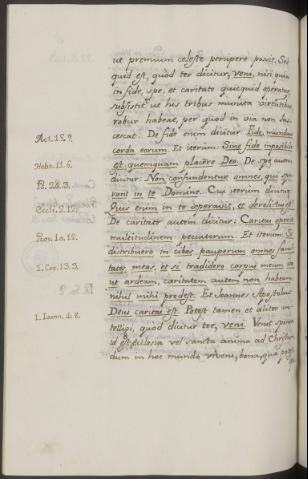 ut premium celeste percipere possit. Sed
quid est, quod ter dicitur, veni, nisi quia
in fide, spe, et caritate quicquid operatur
subsistit ut his tribus munita virtutibus
robur habeat, per quod in via non las-
cescat. De fide enim dicitur Fide mundans
Act. 15. 9.
corda eorum. Et iterum: Sine fide inposibile
Hebr. 11. 6.
est quemquam placere Deo. De spe autem
dicitur: Non confundentur omnes, qui spe-
rant in te Domine. Cui iterum dicitur
Eccli. 2. 12.
Quis enim in te speravit, et derelictus est
De caritate autem dicitur: Caritas operit
Prov. 10. 12.
multitudinem peccatorum. Et iterum: Si
distribuero in cibos pauperum omnes facul-
tates meas, et si tradidero corpus meum ita
I. Cor. 13. 3.
ut ardeam, caritatem autem non habeam
nihil mihi prodest. Et Joannes Apostolus:
Deus caritas est. Potest tamen et aliter in-
I. Joann. 4. 8.
telligi, quod dicitur ter, veni. Venit
id est ecclesia vel sancta anima ad Christum
dum in hoc mundo vivens, bona, que